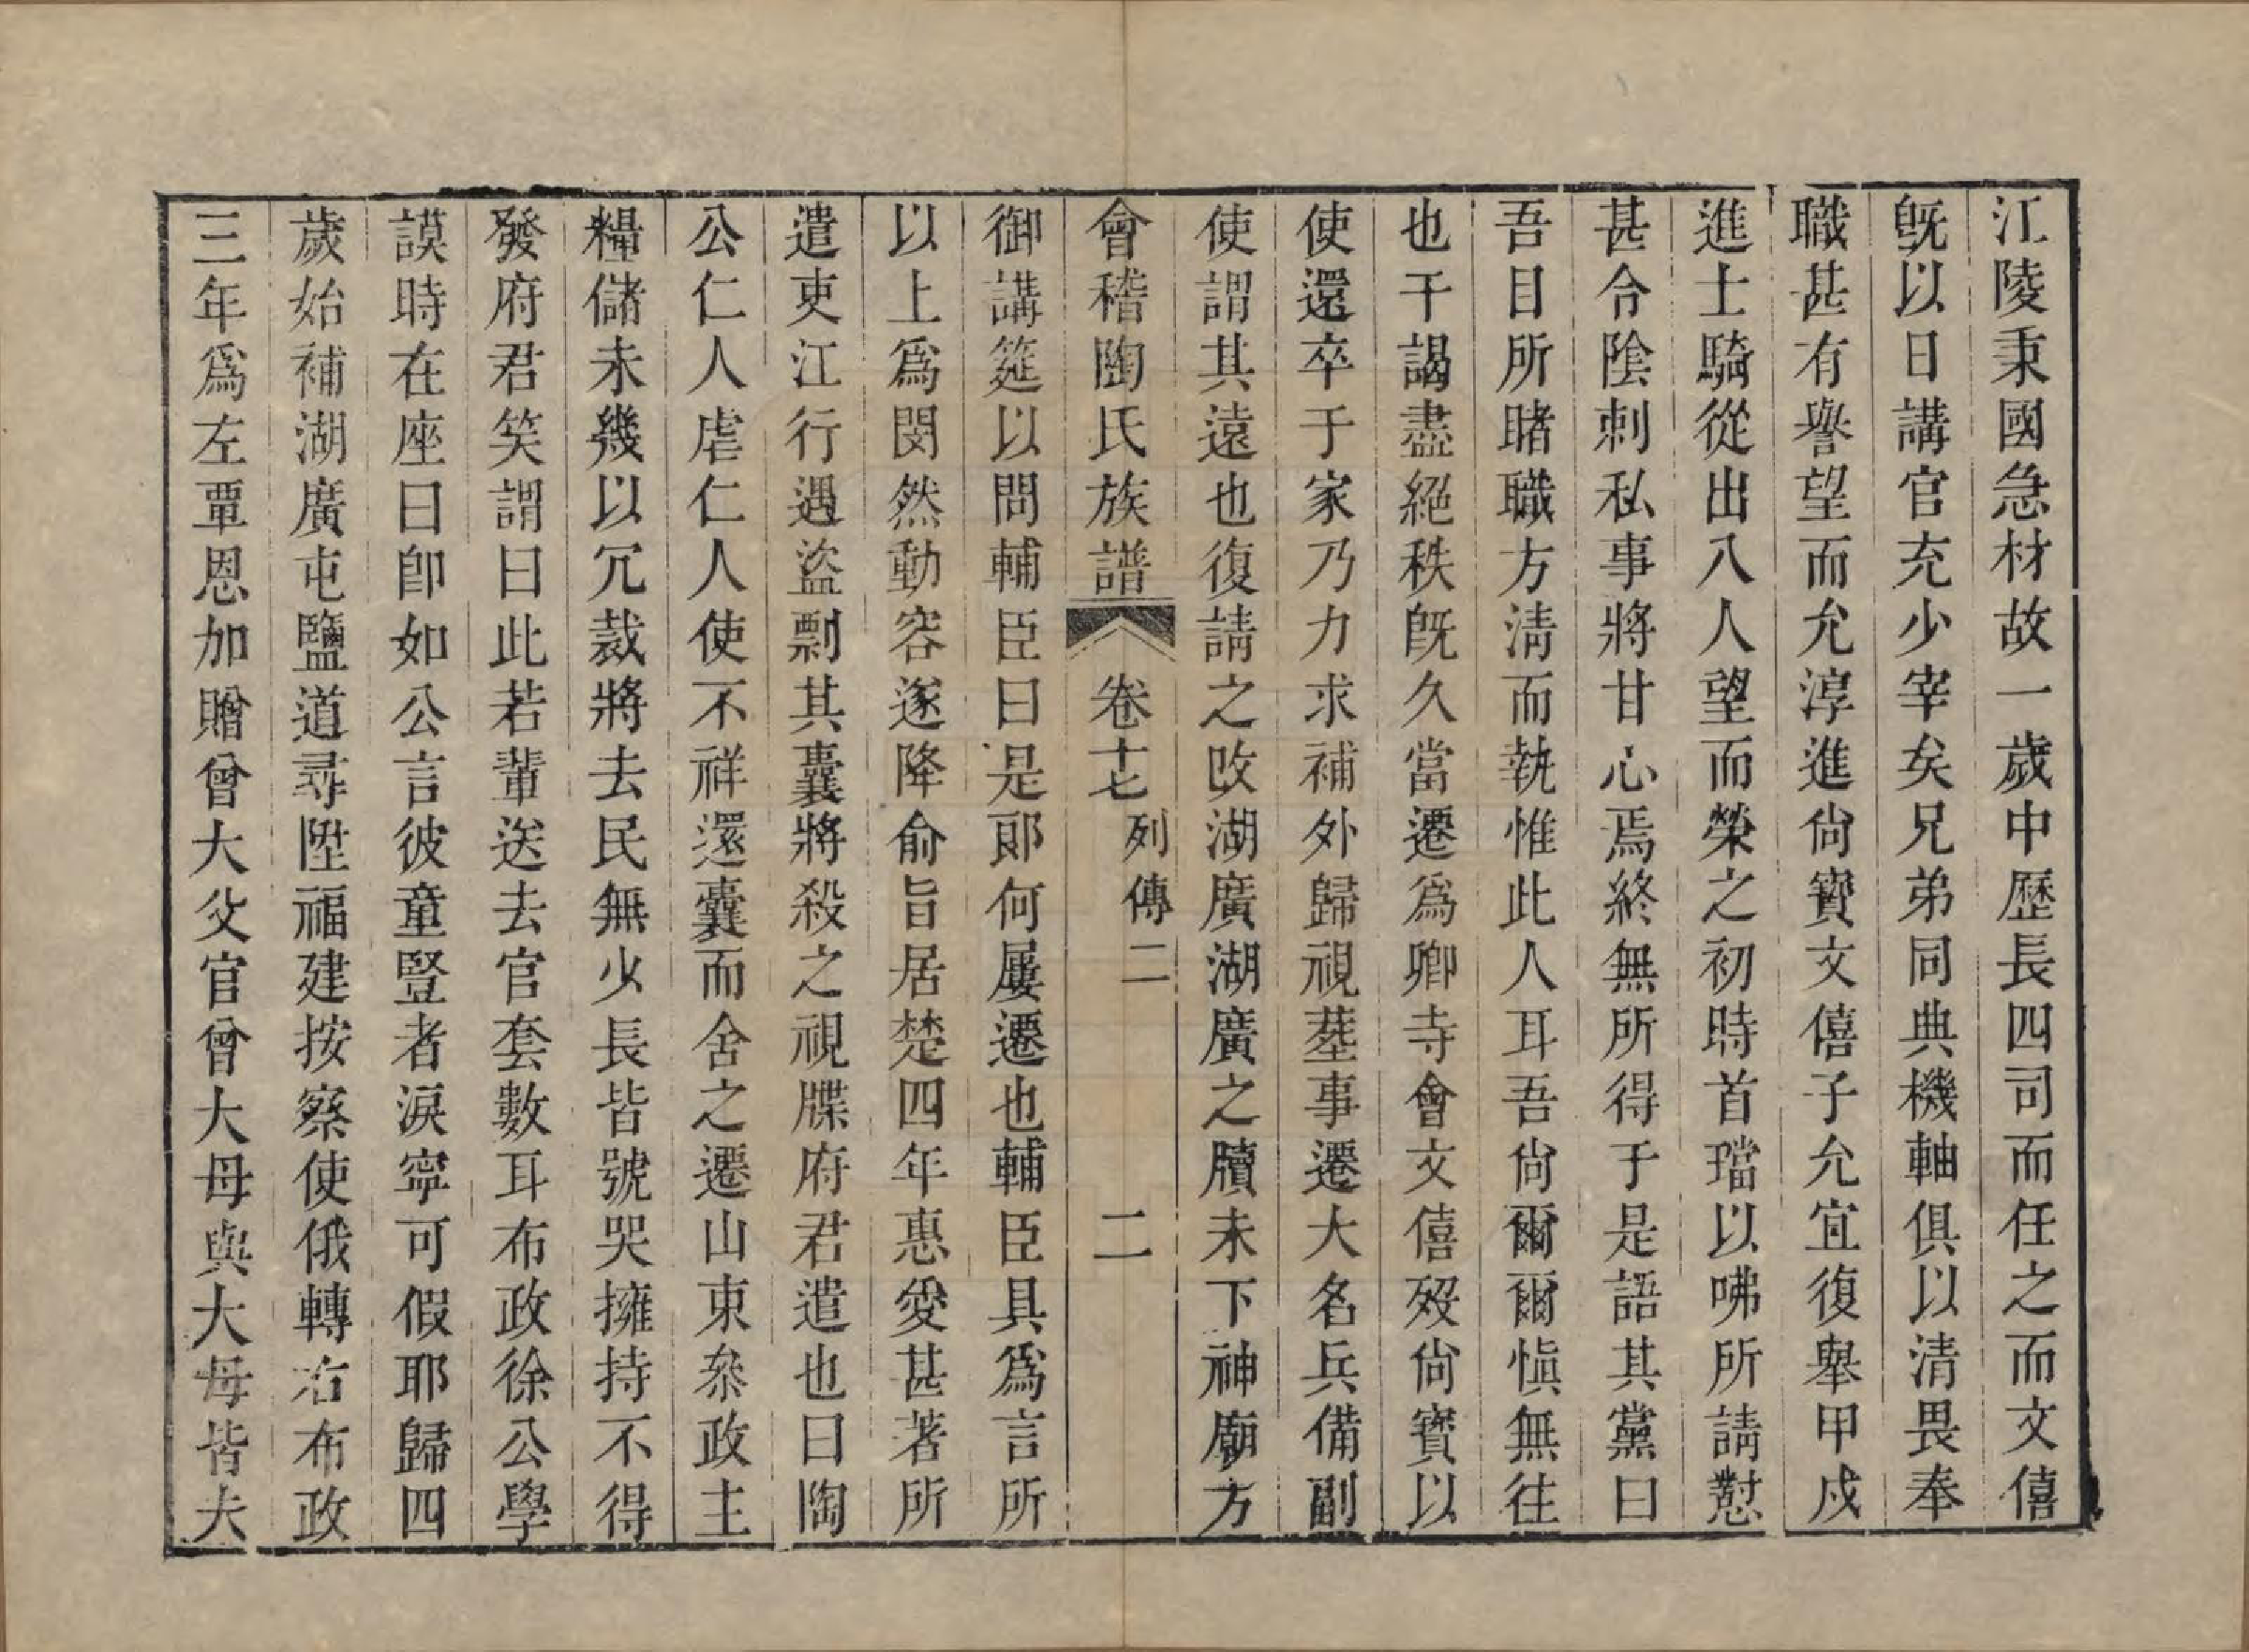 江陵秉國急材故一歲中歷長四司而任之而文僖
旣以日講官充少宰矣兄弟同典機軸俱以清畏奉
職甚有譽望而允淳進尙寶文僖子允宜復舉甲戍
進士騎從出入人望而榮之初時首璫以咈所請懟
甚令陰刺私事將甘心焉終無所得于是語其黨曰
吾目所睹職方淸而執惟此人耳吾尙爾爾愼無往
也干謁盡絕秩旣久當遷爲卿寺會文僖歿尙寶以
使還卒于家乃力求補外歸視塟事遷大名兵備副
使謂其遠也復請之改湖廣湖廣之牘未下神廟方
會稽陶氏族譜 卷十七 列傳二 二
御講筵以問輔臣曰是郎何屢遷也輔臣具爲言所
以上爲閔然動容遂降俞旨居楚四年惠愛甚著所
遣吏江行遇盜剽其囊將殺之視牒府君遣也曰陶
公仁人虐仁人使不祥還囊而舍之遷山東叅政主
糧儲未幾以冗裁將去民無少長皆號哭擁持不得
發府君笑謂曰此若輩送去官套數耳布政徐公學
謨時在座曰卽如公言彼童豎者淚寧可假耶歸四
歲始補湖廣屯鹽道尋陞福建按察使俄轉右布政
三年爲左覃恩加贈曾大父官曾大母與大母皆夫